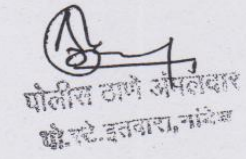 पोलीस ठाणे अंमलदार
पो.स्टे.इतवारा, नांदेड